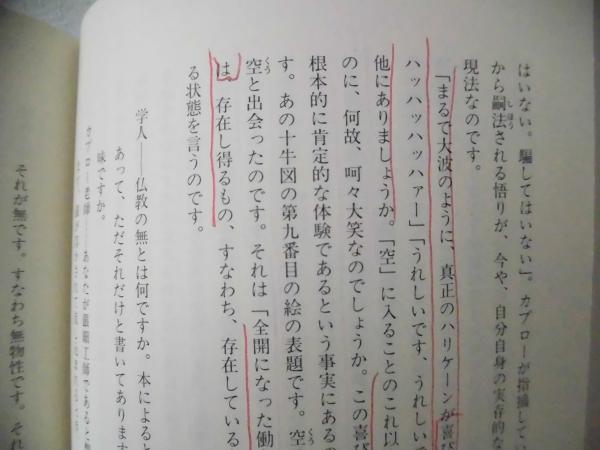 はいない。騙してはいない」。カプローが指摘してい
から嗣法される悟りが、今や、自分自身の実存的な
現法なのです。
「まるで大波のように、真正のハリケーンが喜び
ハッハッハッハァー」「うれしいです、うれしいで
他にありましょうか。「空」に入ることのこれ以
のに、何故、呵々大笑なのでしょうか。この喜び
根本的に肯定的な体験であるという事実にあるの
す。あの十牛図の第九番目の絵の表題です。空
空と出会ったのです。それは「全開になった働
は。存在し得るもの、すなわち、存在している
る状態を言うのです。
学人——仏教の無とは何ですか。本によると
あって、ただそれだけと書いてあります
味ですか。
カプロー老師——あなたが
それが無です。すなわち無物性です。それ